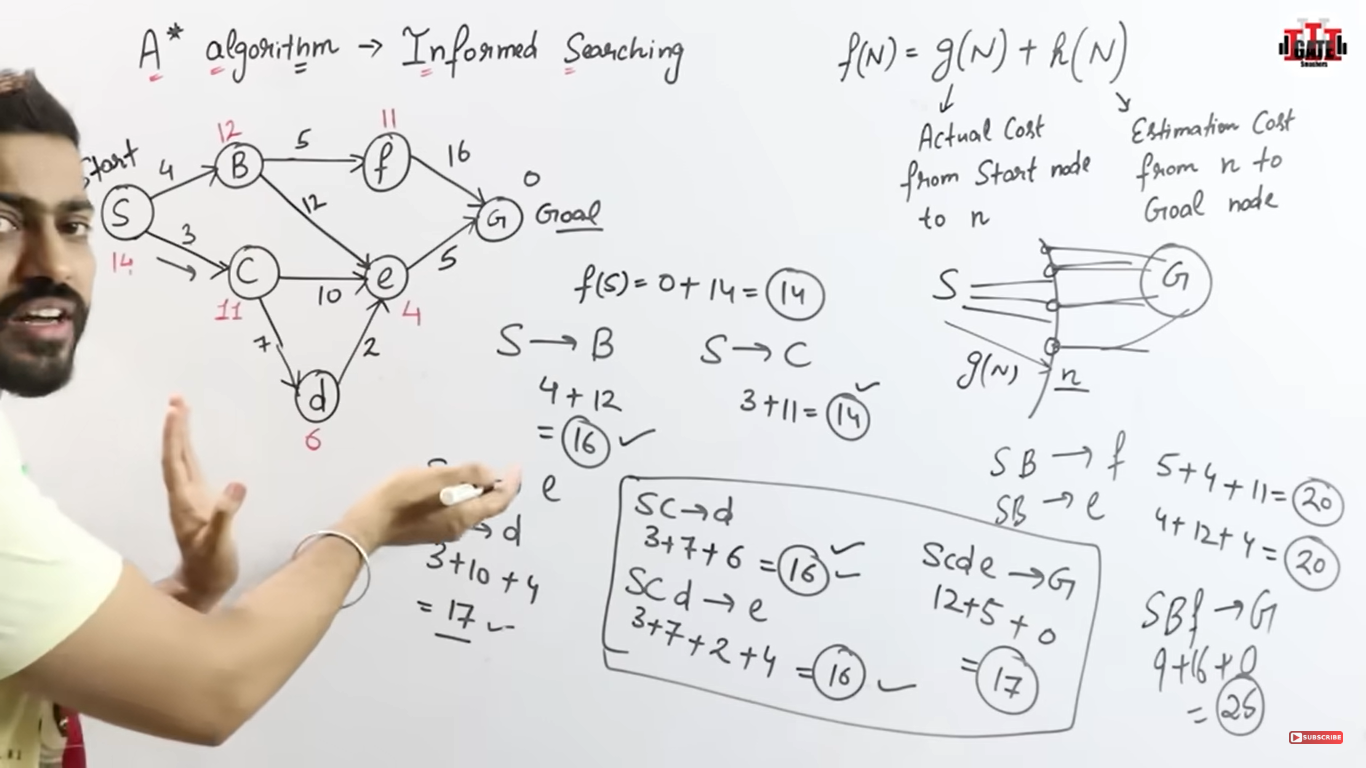 A* algorithm → Informed Searching
f(N) = g(N) + h(N)
GATE
Smashers
Actual Cost
from Start node
to n
Estimation Cost
from n to
Goal node
Start
S
14
4
3
12
B
5
12
11
f
16
0
G
Goal
C
11
10
7
e
4
5
2
d
6
f(S) = 0 + 14 = 14
S → B
4 + 12
= 16 ✓
S → C
3 + 11 = 14 ✓
S
G
g(N)
n
e
→ d
3 + 10 + 4
= 17 ✓
SC → d
3 + 7 + 6 = 16 ✓
SCd → e
3 + 7 + 2 + 4 = 16 ✓
Scde → G
12 + 5 + 0
= 17
SB → f 5 + 4 + 11 = 20
SB → e 4 + 12 + 4 = 20
SBf → G
9 + 16 + 0
= 25
SUBSCRIBE